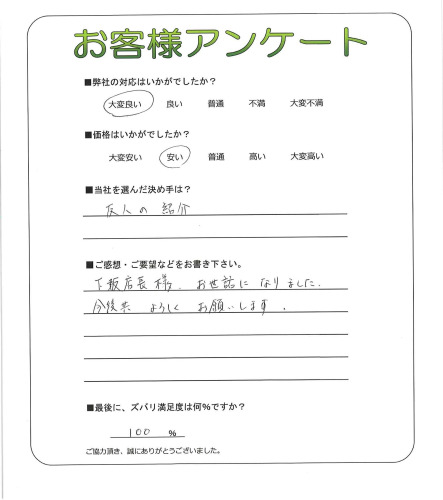 お客様アンケート
■弊社の対応はいかがでしたか？
大変良い 良い 普通 不満 大変不満
■価格はいかがでしたか？
大変安い 安い 普通 高い 大変高い
■当社を選んだ決め手は？
友人の紹介
■ご感想・ご要望などをお書き下さい。
下坂店長様、お世話になりました。
今後共 よろしく お願いします。
■最後に、ズバリ満足度は何％ですか？
100 %
ご協力頂き、誠にありがとうございました。